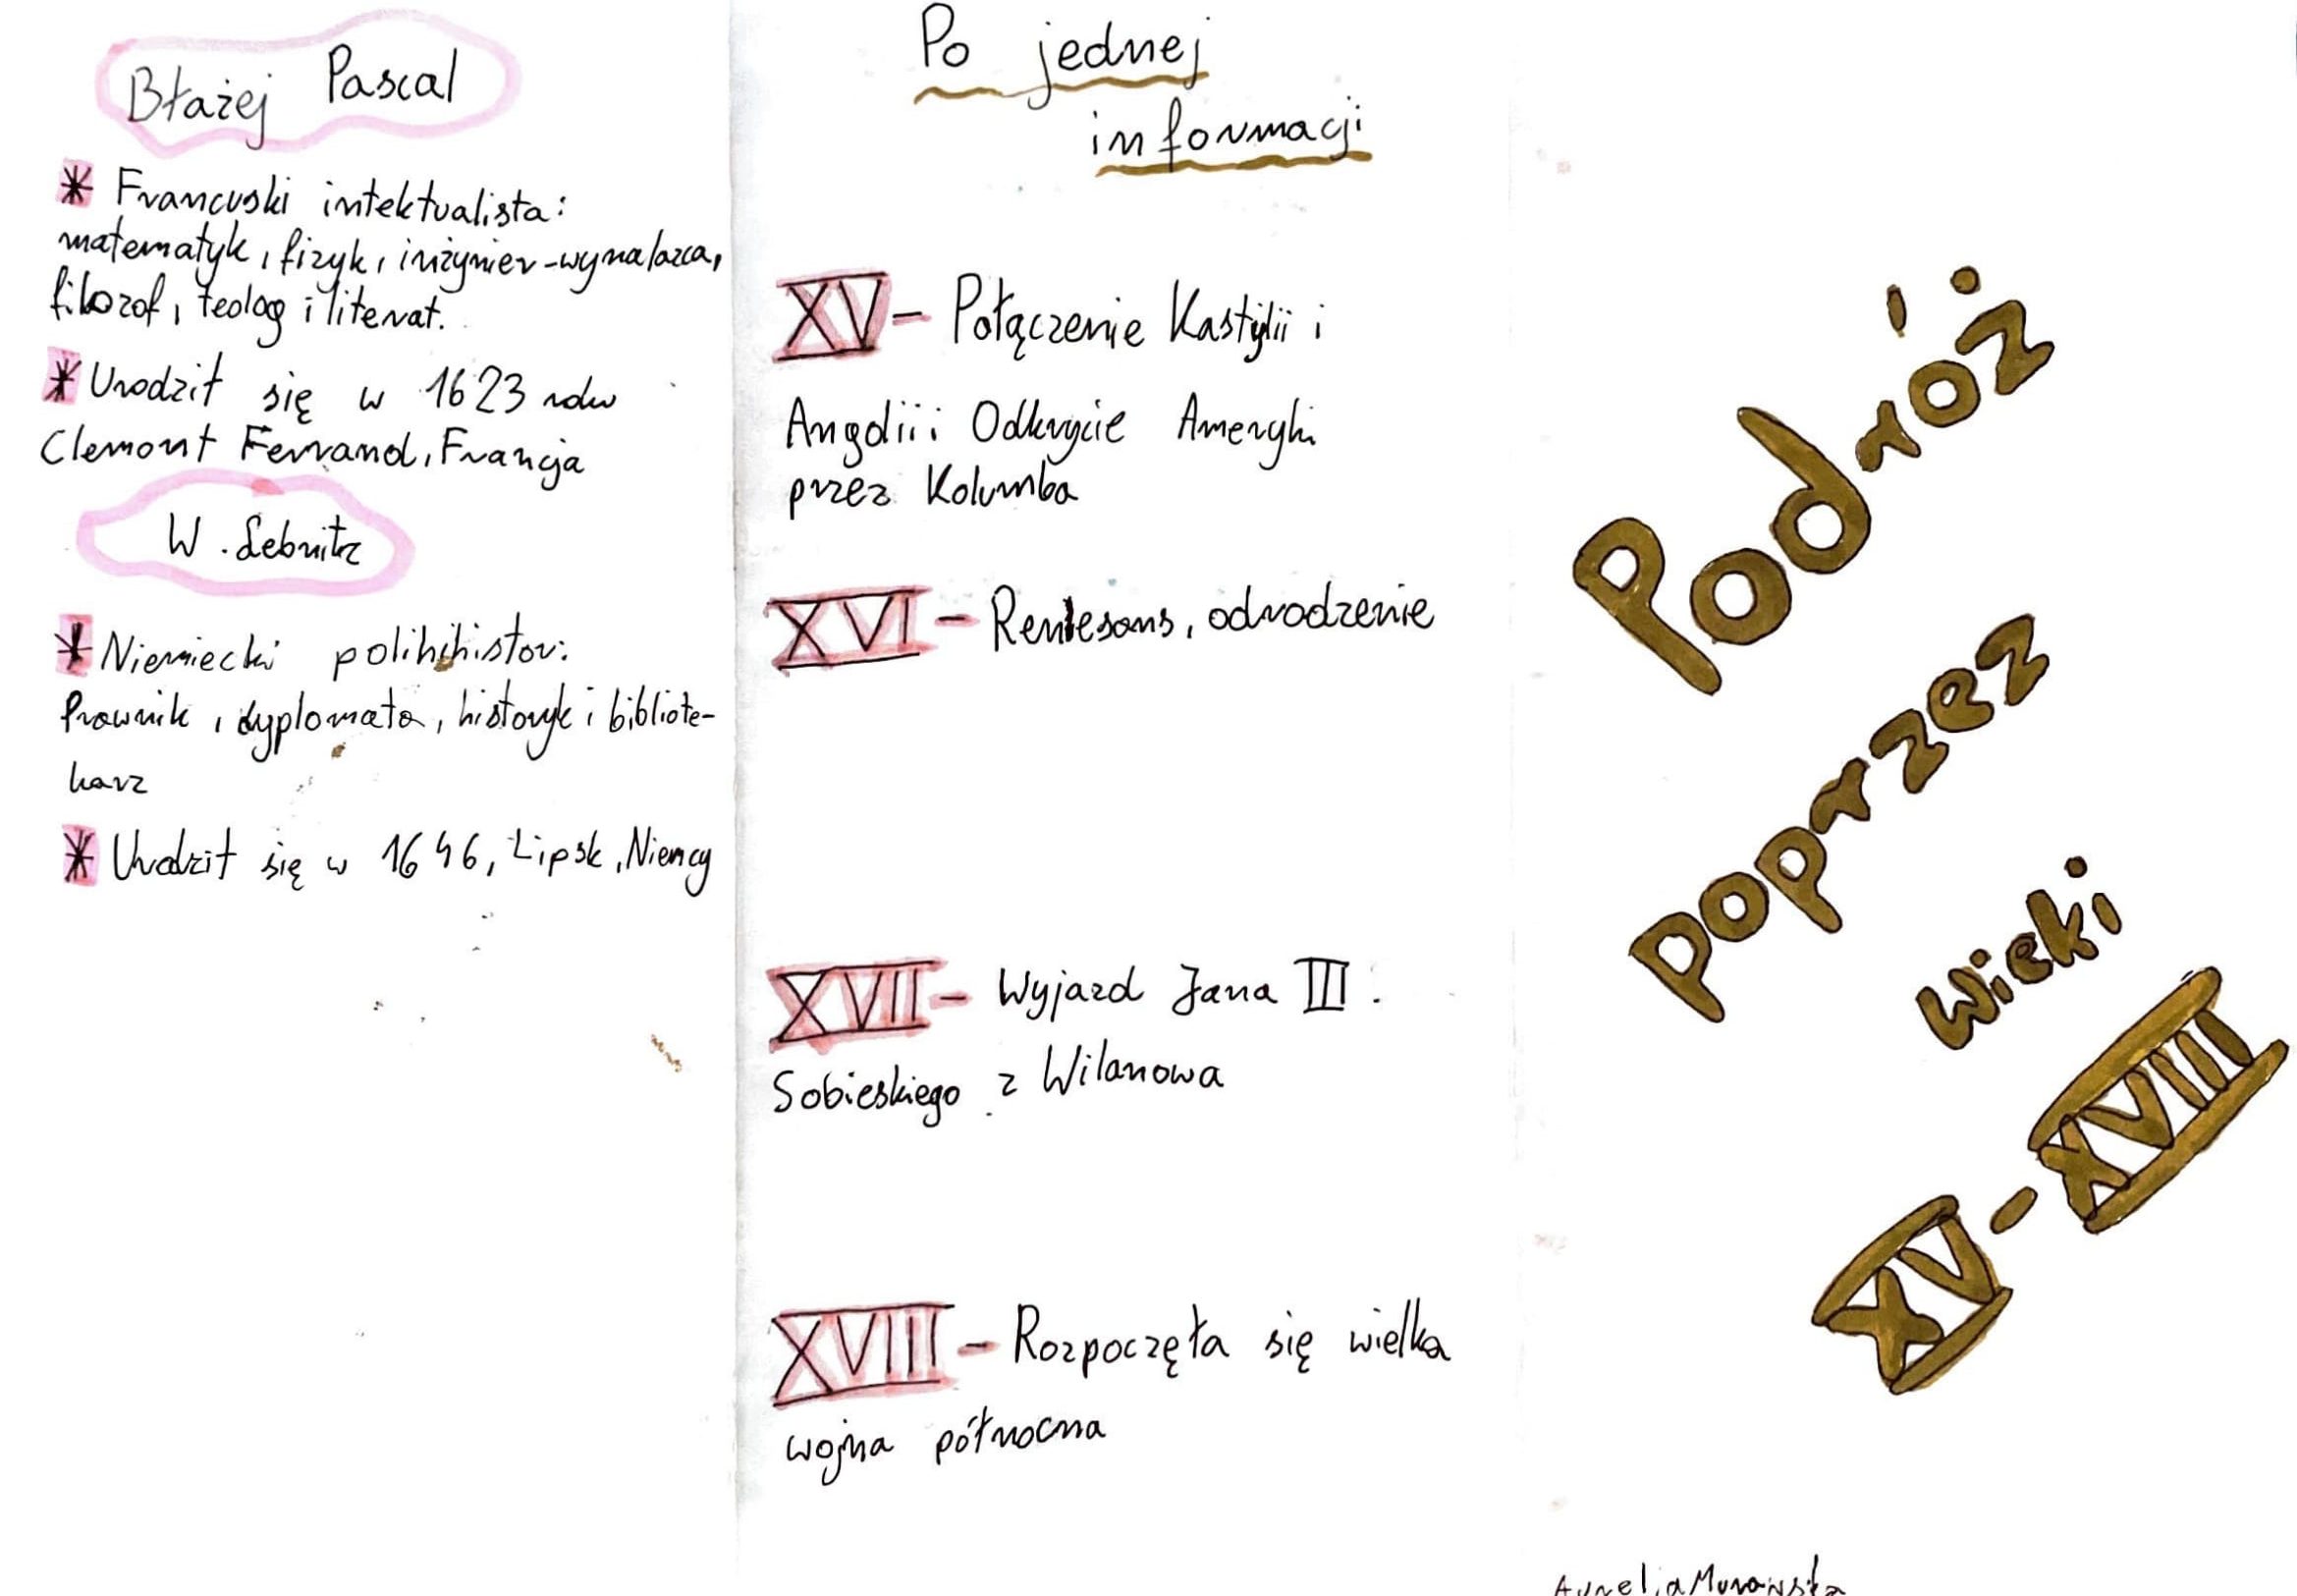 Błażej Pascal
* Francuski intektualista:
matematyk, fizyk, inżynier-wynalazca,
filozof, teolog i literat.
* Urodził się w 1623 roku
Clemont Ferrand, Francja
W. Lebnitz
* Niemiecki polihihistor:
Prawnik, dyplomata, historyk i bibliote-
karz
* Urodził się w 1646, Lipsk, Niemcy
Po jednej
informacji
XV - Połączenie Kastylii i
Angolii i Odkrycie Ameryki
przez Kolumba
XVI - Renesans, odrodzenie
XVII - Wyjazd Jana III
Sobieskiego z Wilanowa
XVIII - Rozpoczęła się wielka
wojna północna
Podróż
poprzez
Wieki
XV-XVIII
Aurelia Murawska